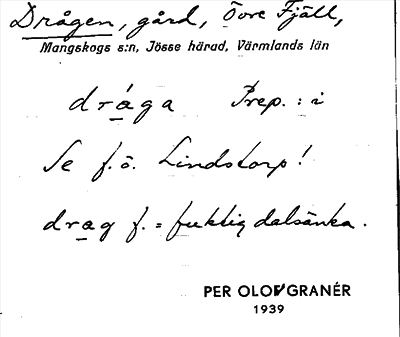 Drågen, gård, Övre Fjäll,
Mangskogs s:n, Jösse härad, Värmlands län
dråga Prep. : i
Se f. ö. Lindstorp!
drag f. = fuktig dalsänka.
PER OLOF GRANÉR
1939